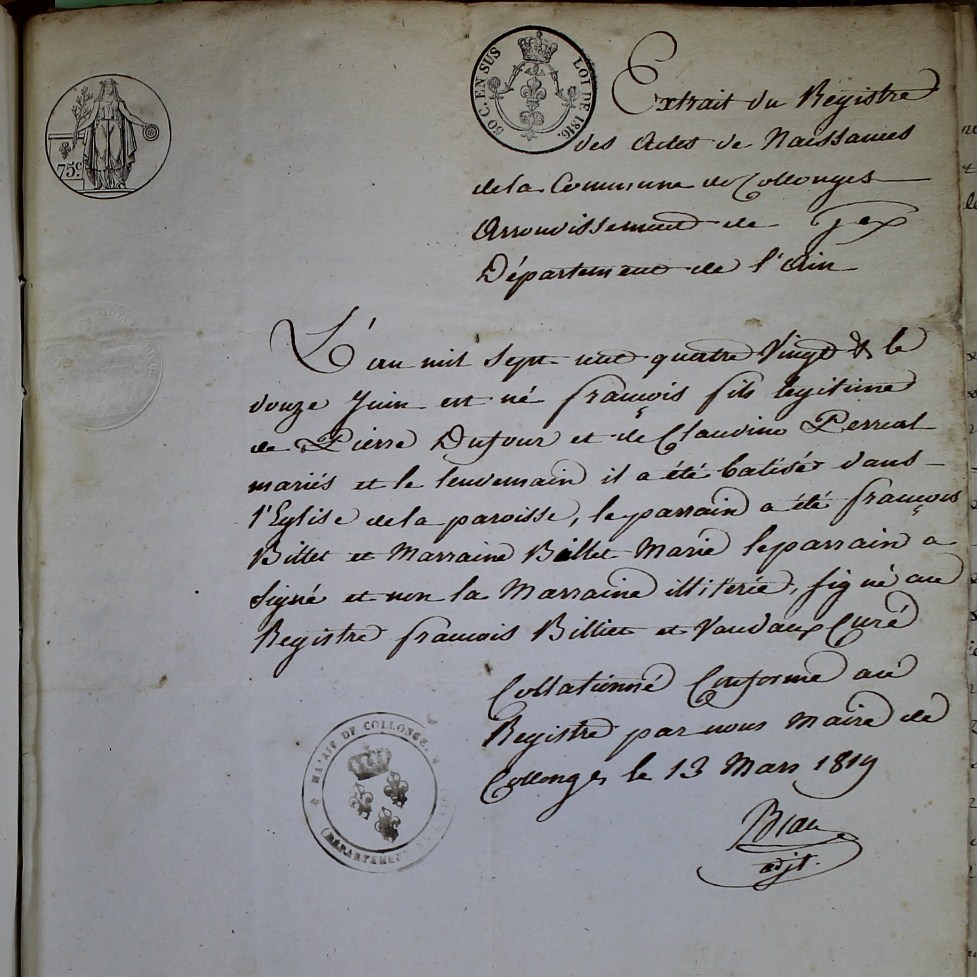 75.c
50 C. EN SUS LOI DE 1816.
Extrait du Registre
des Actes de Naissances
de la Commune de Collonges
Arrondissement de Gex
Département de l'Ain
L'an mil sept cent quatre vingt & le
douze Juin est né françois fils legitime
de Pierre Dufour et de Claudine Perreal
mariés et le lendemain il a été batisé dans
l'Eglise de la paroisse, le parrain a été françois
Billet et Marraine Billet Marie le parrain a
signé et non la Marraine illiterée, signé au
Registre francois Billiet et Vaudaux Curé
Collationné Conforme au
Registre par nous Maire de
Collonges le 13 Mars 1819
adjt.
MAIRIE DE COLLONGE.
(DÉPARTEMENT